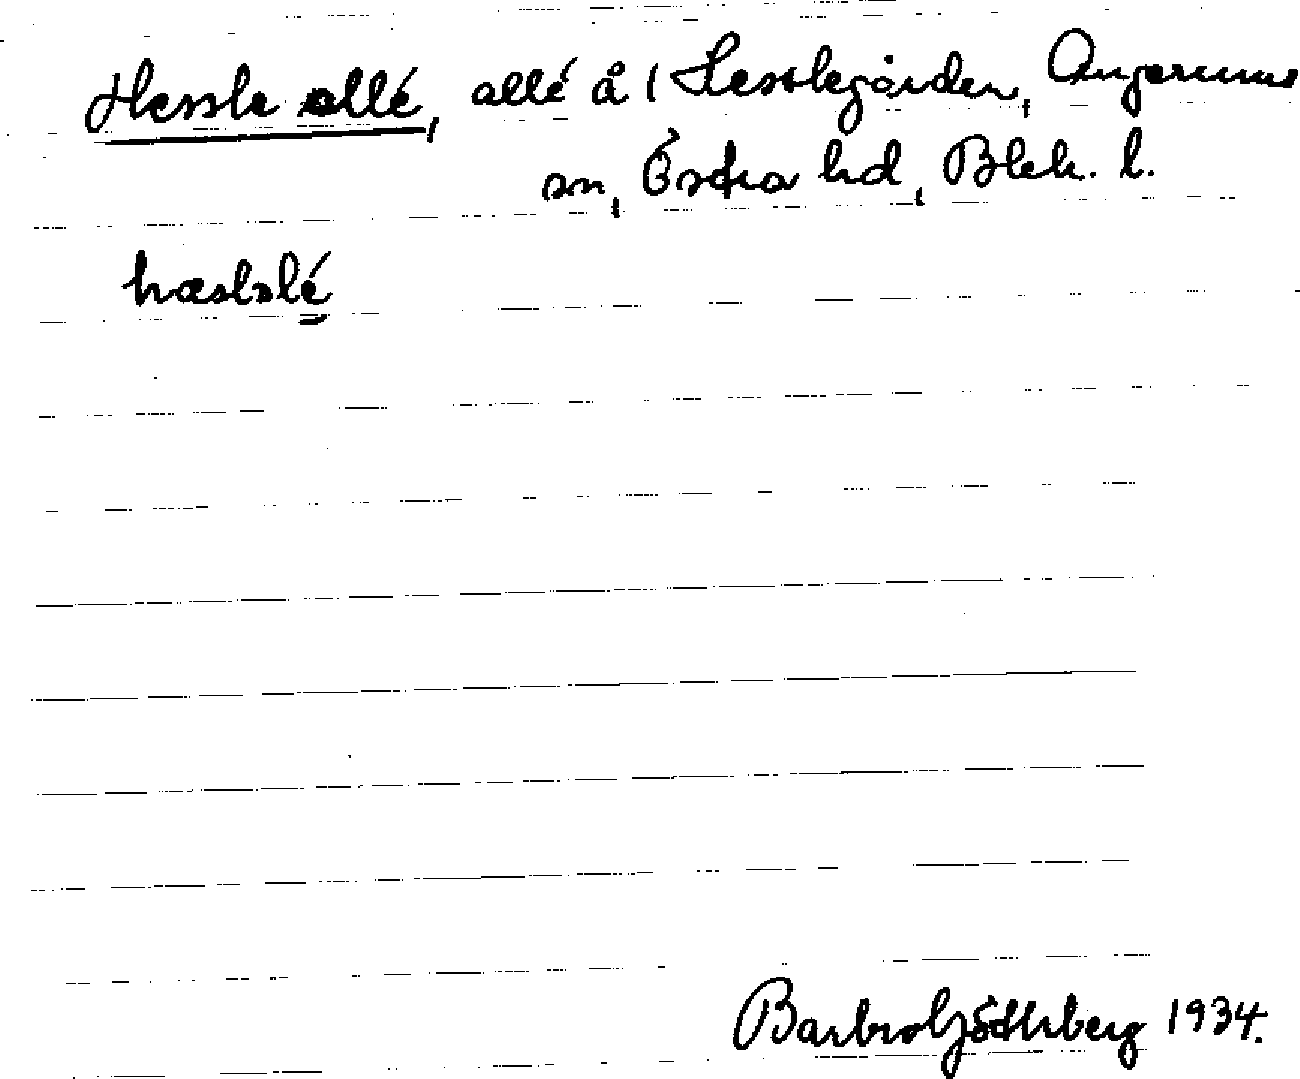 Hessle allé, allé å 1 Hesslegården, Augerums
sn, Östra hd, Blek. l.
hæslalé
Barbro Göthberg 1934.